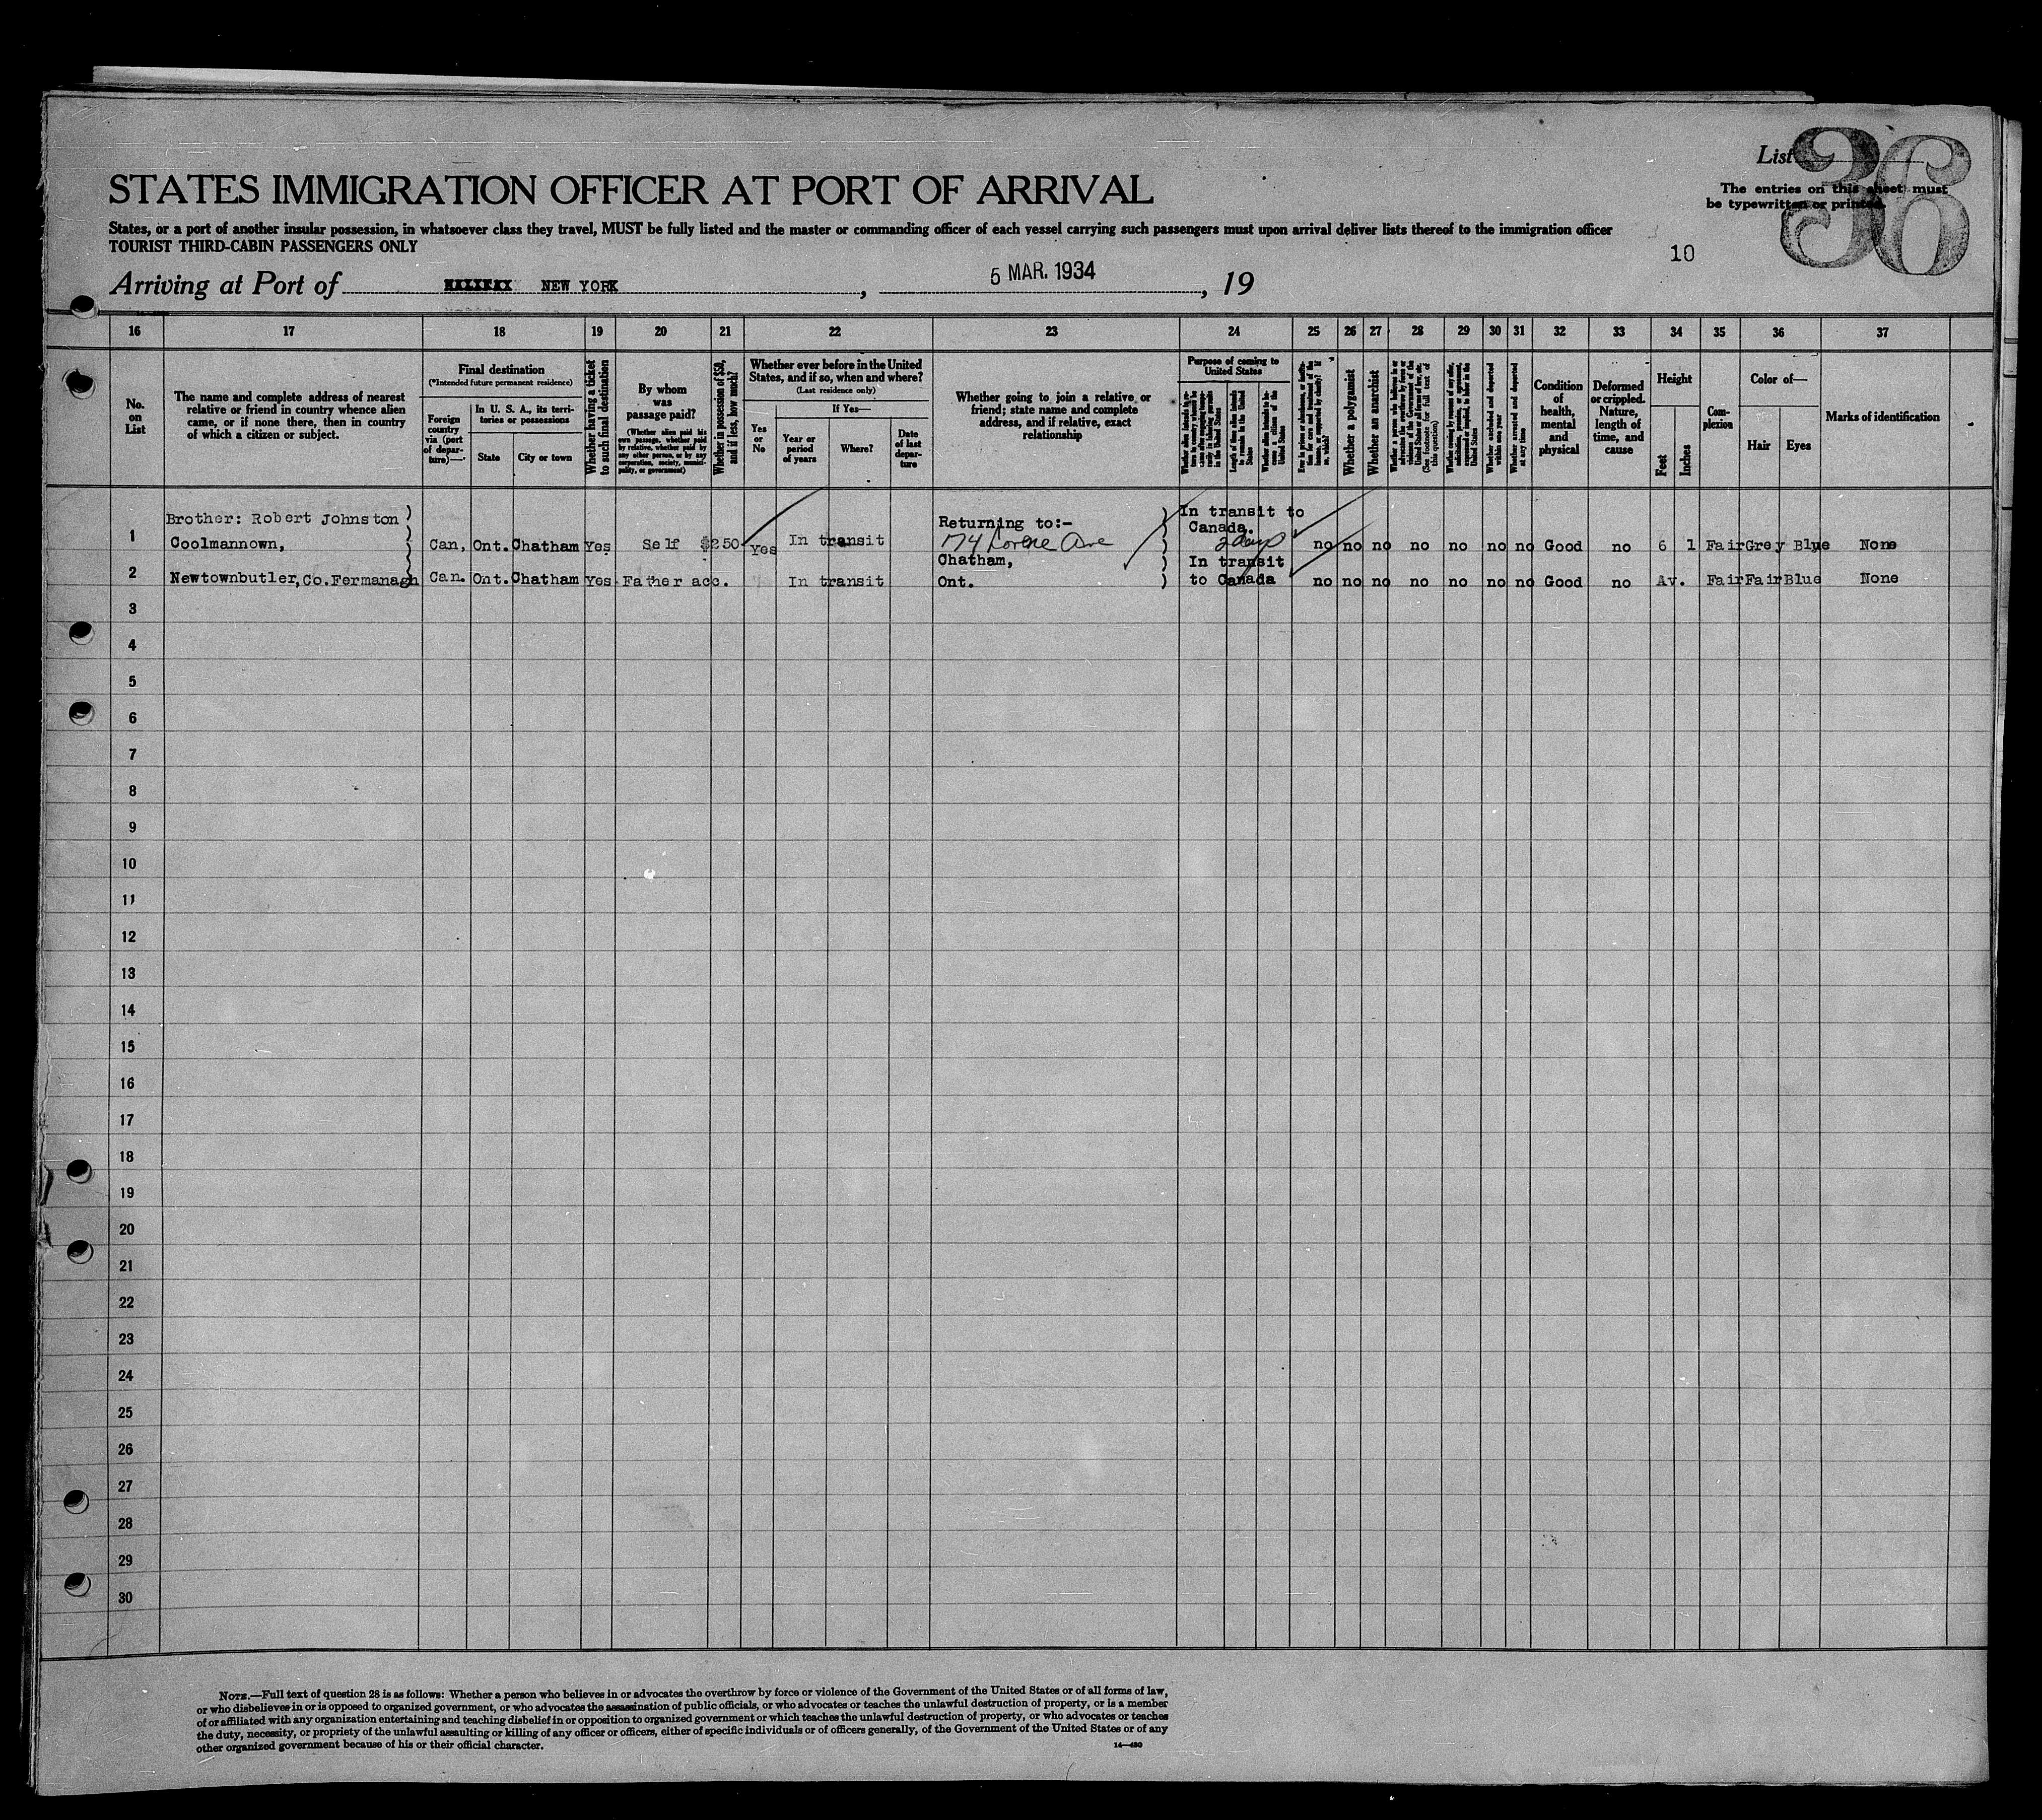 List
36
The entries on this sheet must
be typewritten or printed.
STATES IMMIGRATION OFFICER AT PORT OF ARRIVAL
States, or a port of another insular possession, in whatsoever class they travel, MUST be fully listed and the master or commanding officer of each vessel carrying such passengers must upon arrival deliver lists thereof to the immigration officer
TOURIST THIRD-CABIN PASSENGERS ONLY
10
Arriving at Port of HALIFAX NEW YORK, 5 MAR. 1934, 19
16 17 18 19 20 21 22 23 24 25 26 27 28 29 30 31 32 33 34 35 36 37
No.
on
List
The name and complete address of nearest
relative or friend in country whence alien
came, or if none there, then in country
of which a citizen or subject.
Final destination
(*Intended future permanent residence)
Foreign
country
via (port
of depar-
ture)—*
In U. S. A., its terri-
tories or possessions
State
City or town
Whether having a ticket
to such final destination
By whom
was
passage paid?
(Whether alien paid his
own passage, whether paid
by relative, whether paid by
any other person, or by any
corporation, society, munici-
pality, or government)
Whether in possession of $50,
and if less, how much?
Whether ever before in the United
States, and if so, when and where?
(Last residence only)
Yes
or
No
If Yes—
Year or
period
of years
Where?
Date
of last
depar-
ture
Whether going to join a relative or
friend; state name and complete
address, and if relative, exact
relationship
Purpose of coming to
United States
Length of time alien intends
to remain in the United
States
Whether alien intends to be-
come a citizen of the
United States
Whether a polygamist
Whether an anarchist
(See footnote for full text of
this question)
Whether excluded and deported
within one year
Whether arrested and deported
at any time
Condition
of
health,
mental
and
physical
Deformed
or crippled.
Nature,
length of
time, and
cause
Height
Feet
Inches
Com-
plexion
Color of—
Hair
Eyes
Marks of identification
Brother: Robert Johnston
1 Coolmannown, Can, Ont. Chatham Yes Self $250 Yes In transit Returning to:- 174 Lorne Ave In transit to Canada. 2 days no no no no no no no Good no 6 1 Fair Grey Blue None
2 Newtownbutler, Co. Fermanagh Can. Ont. Chatham Yes Father acc. In transit Chatham, Ont. In transit to Canada no no no no no no no Good no Av. Fair Fair Blue None
3
4
5
6
7
8
9
10
11
12
13
14
15
16
17
18
19
20
21
22
23
24
25
26
27
28
29
30
NOTE.—Full text of question 28 is as follows: Whether a person who believes in or advocates the overthrow by force or violence of the Government of the United States or of all forms of law,
or who disbelieves in or is opposed to organized government, or who advocates the assassination of public officials, or who advocates or teaches the unlawful destruction of property, or is a member
of or affiliated with any organization entertaining and teaching disbelief in or opposition to organized government or which teaches the unlawful destruction of property, or who advocates or teaches
the duty, necessity, or propriety of the unlawful assaulting or killing of any officer or officers, either of specific individuals or of officers generally, of the Government of the United States or of any
other organized government because of his or their official character.
14—430